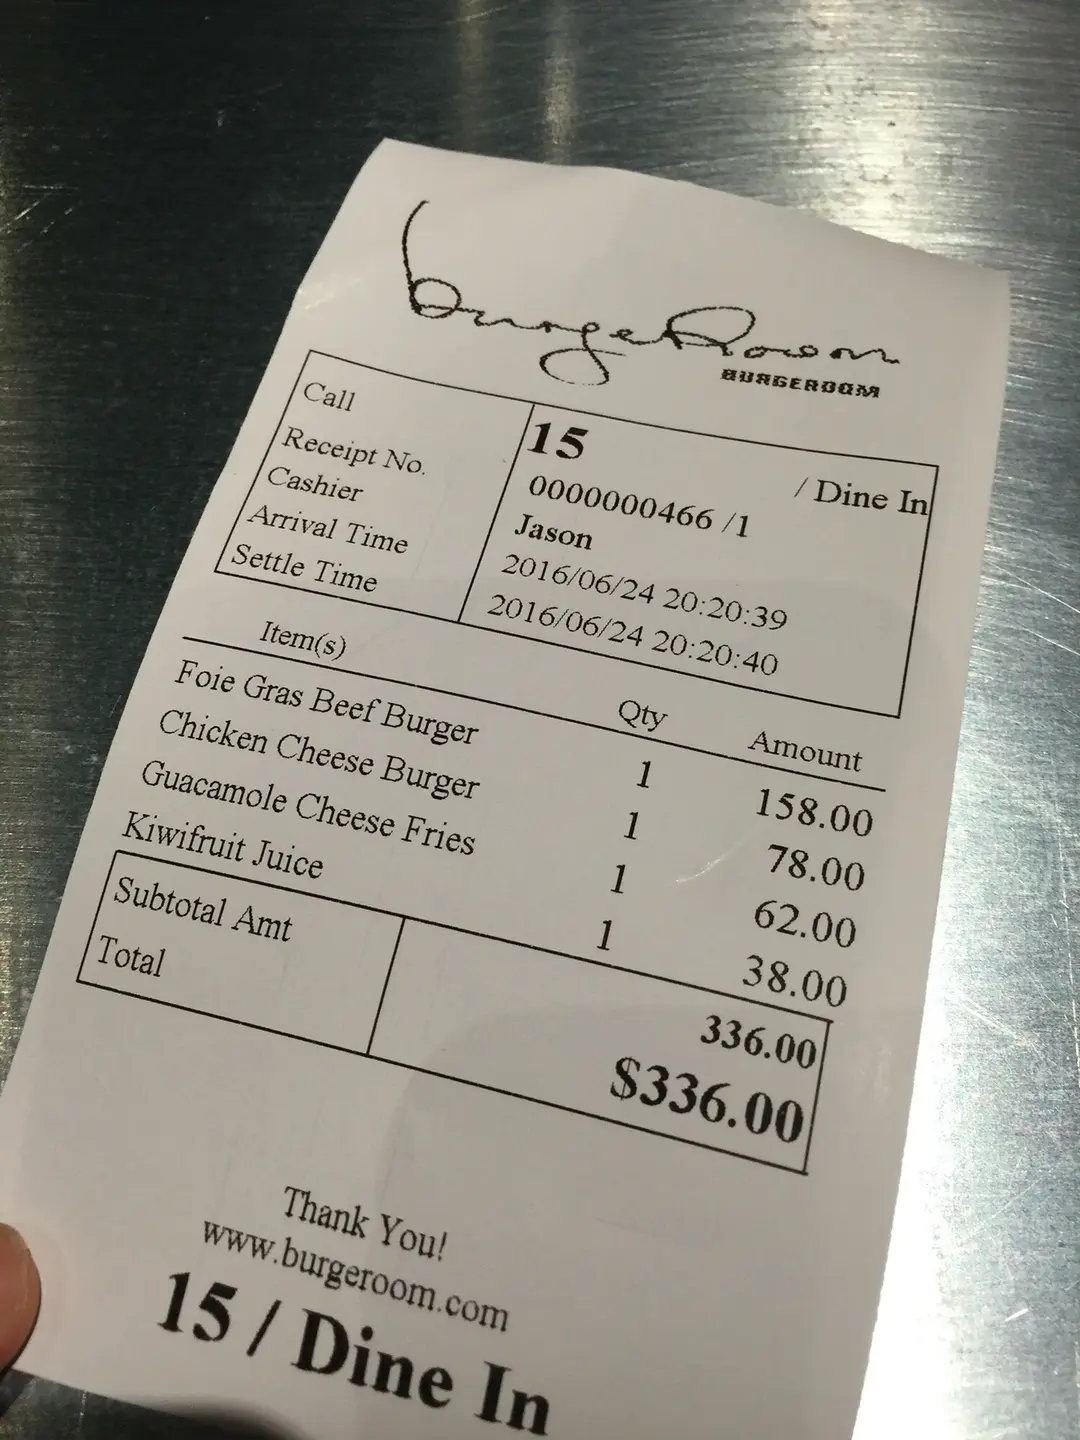 burgeRoom
BURGEROOM
Call 15 / Dine In
Receipt No. 0000000466 /1
Cashier Jason
Arrival Time 2016/06/24 20:20:39
Settle Time 2016/06/24 20:20:40
Item(s) Qty Amount
Foie Gras Beef Burger 1 158.00
Chicken Cheese Burger 1 78.00
Guacamole Cheese Fries 1 62.00
Kiwifruit Juice 1 38.00
Subtotal Amt 336.00
Total $336.00
Thank You!
www.burgeroom.com
15 / Dine In